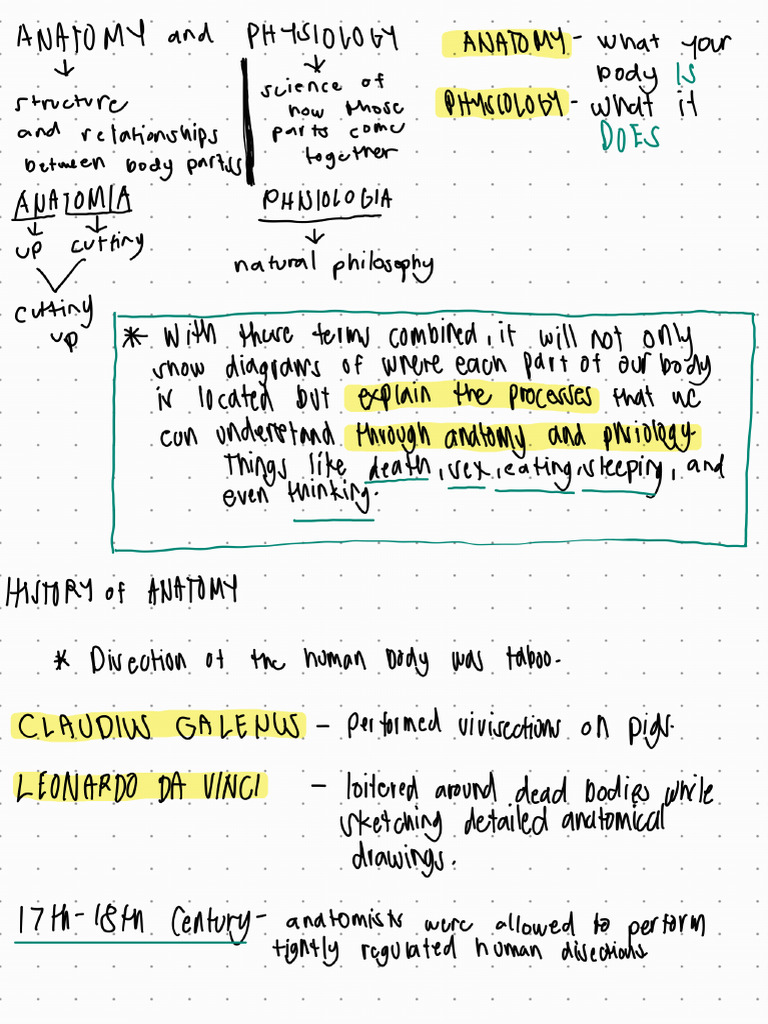 ANATOMY and PHYSIOLOGY
structure
and relationships
between body parts
science of
how those
parts come
together
ANATOMY - what your
body IS
PHYSCOLOGY - what it
DOES
ANATOMIA
up cutting
cutting
up
PHNIOLOGIA
natural philosophy
* With those terms combined, it will not only
show diagrams of where each part of our body
is located but explain the processes that we
can understand through anatomy and phsiology.
Things like death, sex, eating, sleeping, and
even thinking.
HISTORY of ANATOMY
* Disection of the human body was taboo.
CLAUDIUS GALENUS - performed vivisections on pigs.
LEONARDO DA VINCI - loitered around dead bodies while
sketching detailed anatomical
drawings.
17th-18th Century - anatomists were allowed to perform
tightly regulated human disections